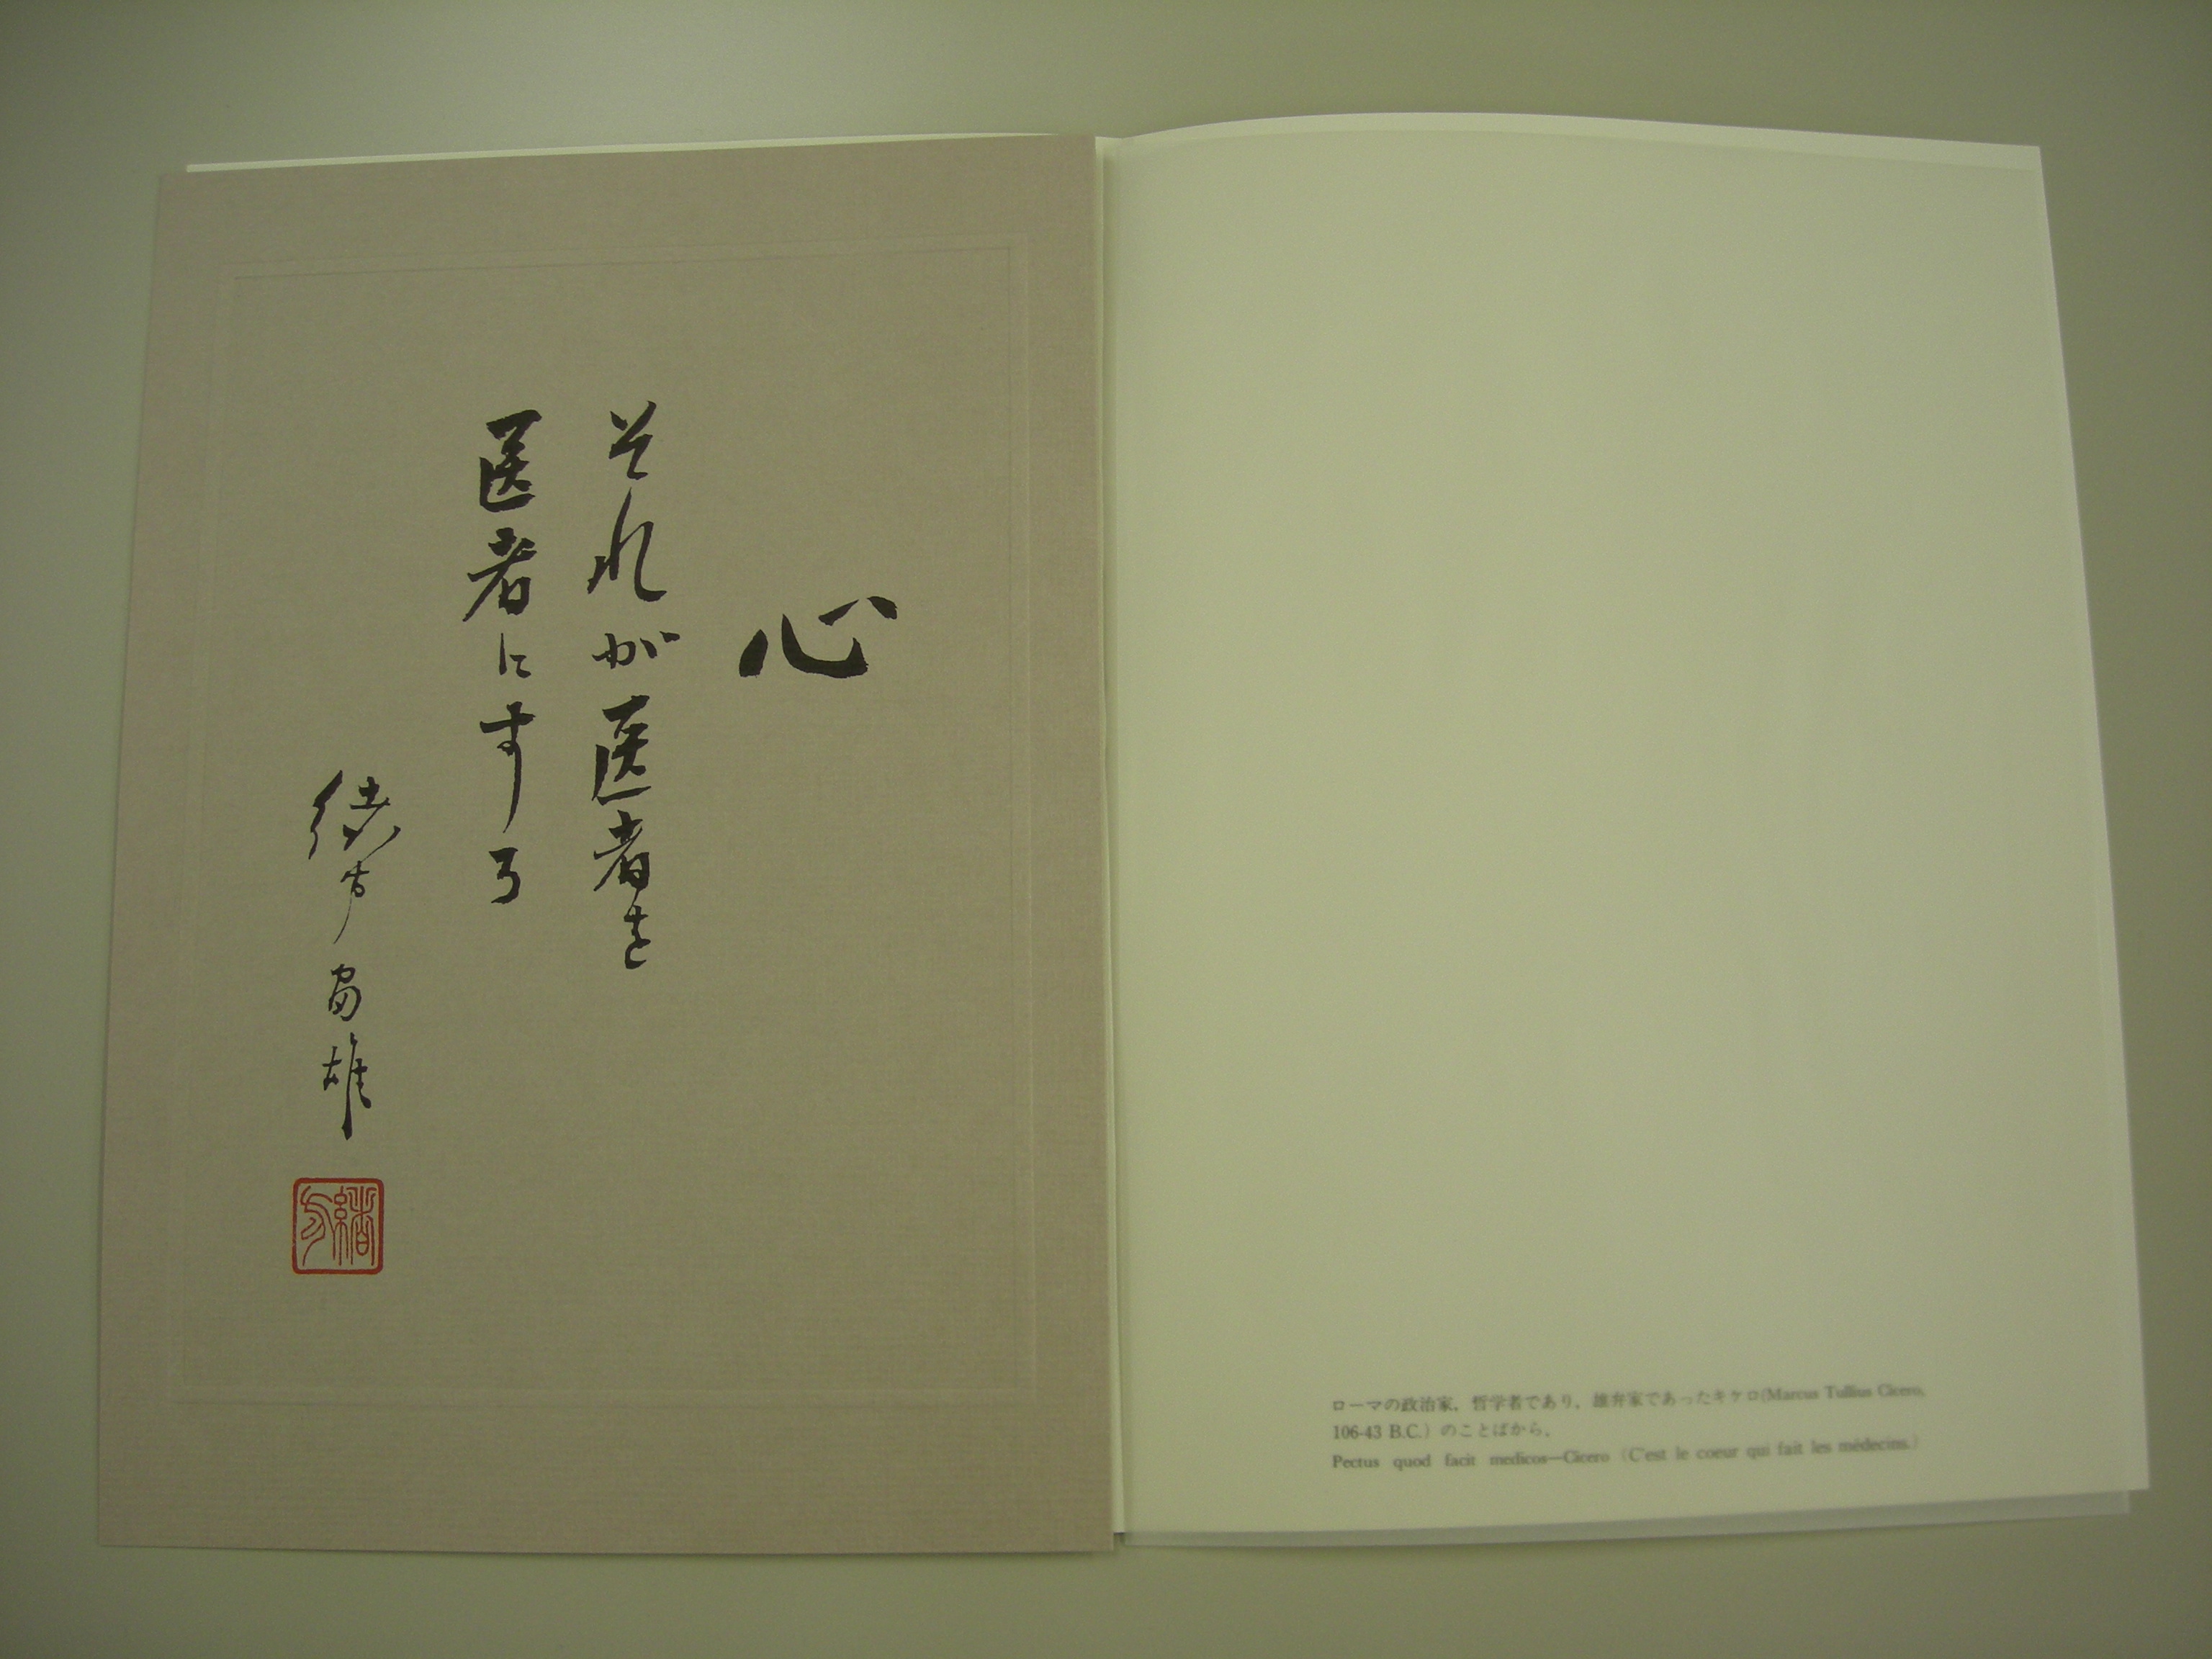 心
それが医者を
医者にする
緒方富雄
緒方
ローマの政治家，哲学者であり，雄弁家であったキケロ(Marcus Tullius Cicero,
106-43 B.C.）のことばから．
Pectus quod facit medicos—Cicero（C'est le coeur qui fait les médecins.）